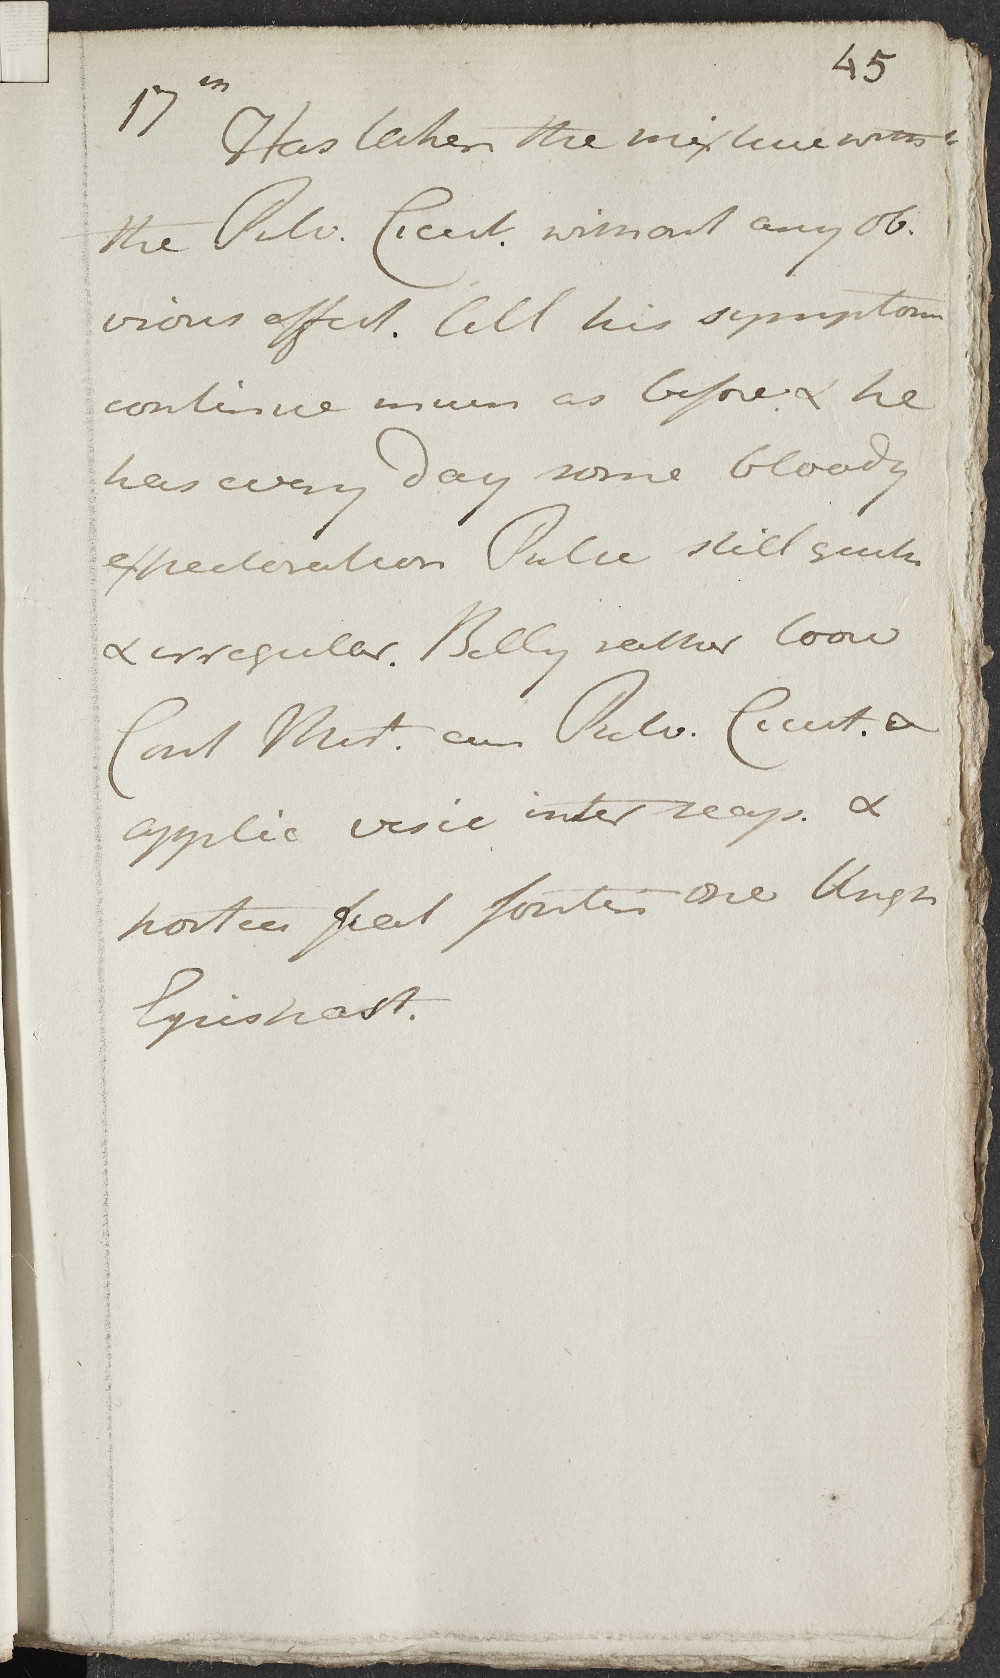 45
17th Has taken the mixture with
the Pulv. Cicut. without any ob.
vious effect. All his symptoms
continue much as before. & he
has every day some bloody
expectoration Pulse still quick
& irregular. Belly rather loose
Cont Mist. cum Pulv. Cicut. &
applic vesic inter scap. &
postea fiat fontic ope Ungu
Epispast.